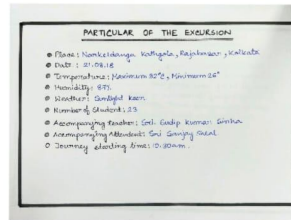 PARTICULAR OF THE EXCURSION
Place: Narkeldanga Kathgola, Rajabazar, Kolkata
Date: 21.08.18
Temperature: Maximum 32°C, Minimum 26°
Humidity: 87%
Weather: Sunlight keen
Number of Student: 23
Accompanying teacher: Sri Sudip Kumar Sinha
Accompanying Attendent: Sri Sanjay Sheal
Journey starting time: 10:30am.